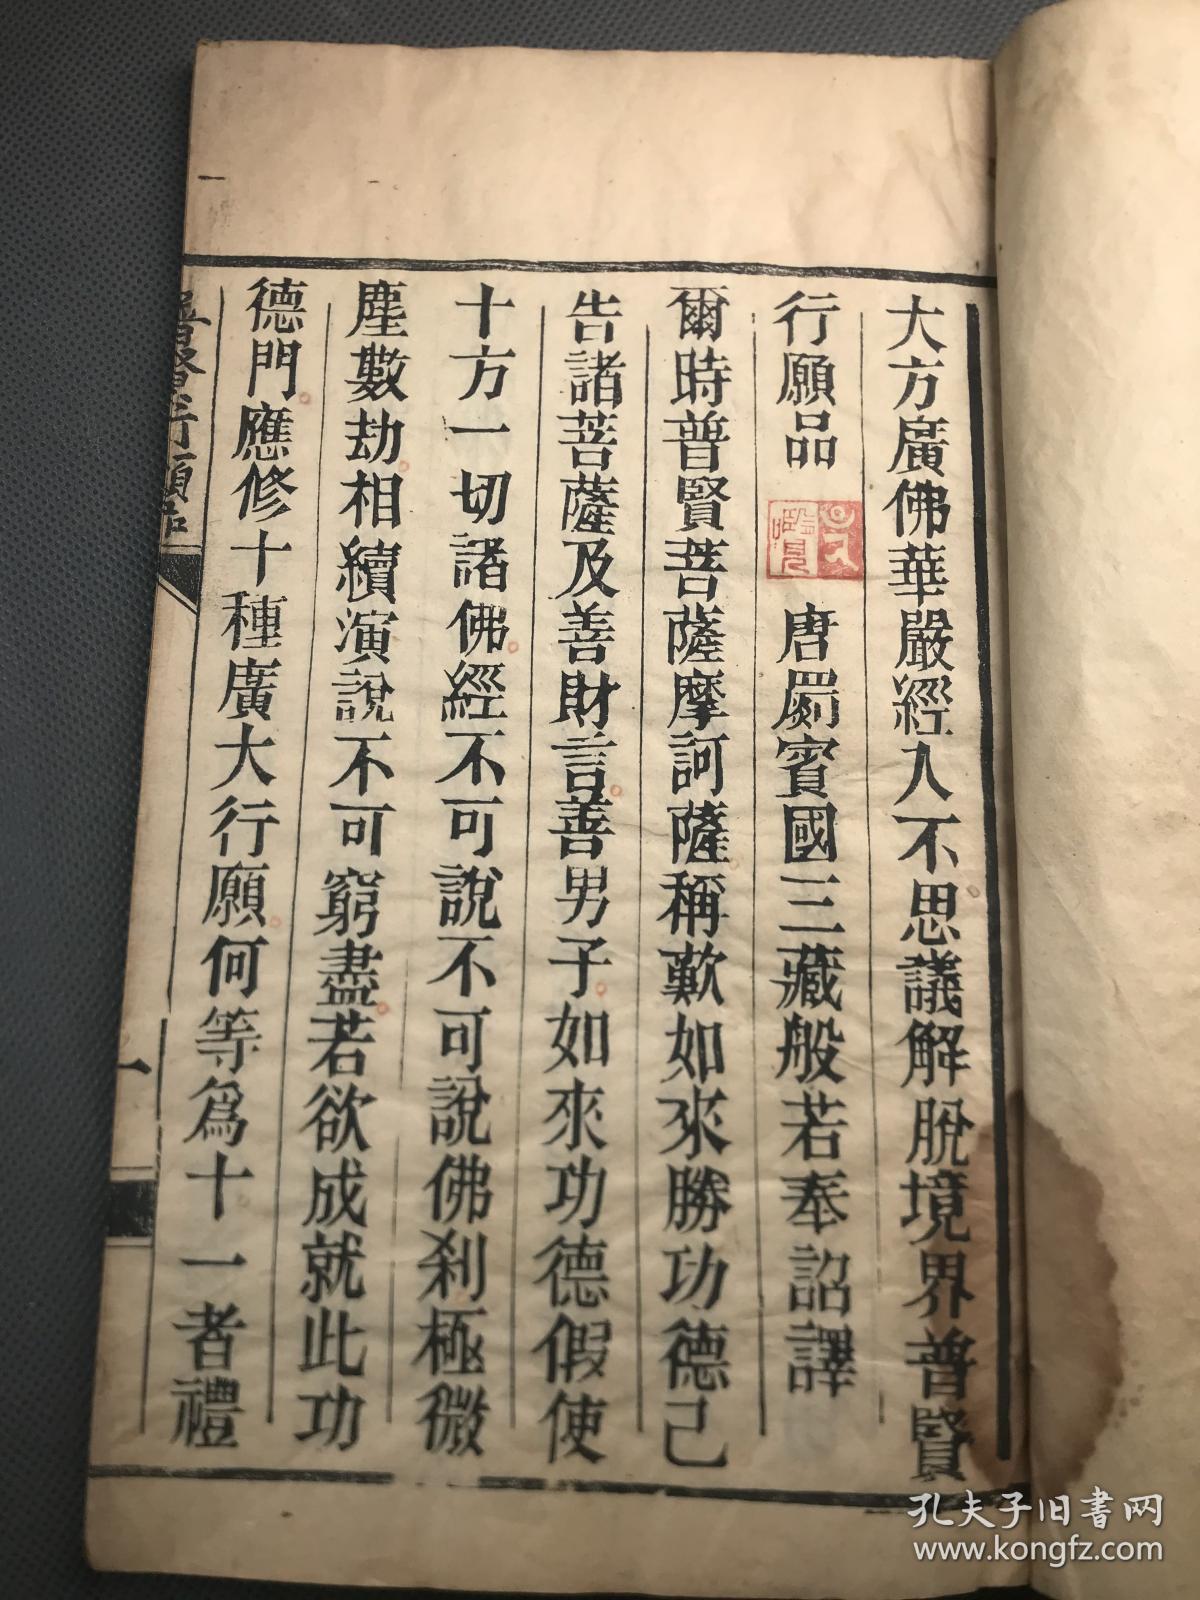 大方廣佛華嚴經入不思議解脫境界普賢
行願品
唐罽賓國三藏般若奉詔譯
爾時普賢菩薩摩訶薩稱歎如來勝功德已
告諸菩薩及善財言善男子如來功德假使
十方一切諸佛經不可說不可說佛剎極微
塵數劫相續演說不可窮盡若欲成就此功
德門應修十種廣大行願何等為十一者禮
普賢行願品
一
孔夫子旧书网
www.kongfz.com